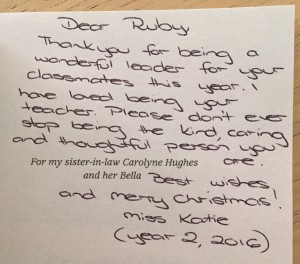 Dear Ruby
Thankyou for being a
wonderful leader for your
classmates this year. I
have loved being your
teacher. Please don't ever
stop being the kind, caring
and thoughtful person you
are.
For my sister-in-law Carolyne Hughes
and her Bella
Best wishes
and merry Christmas!
miss Katie
(year 2, 2016)